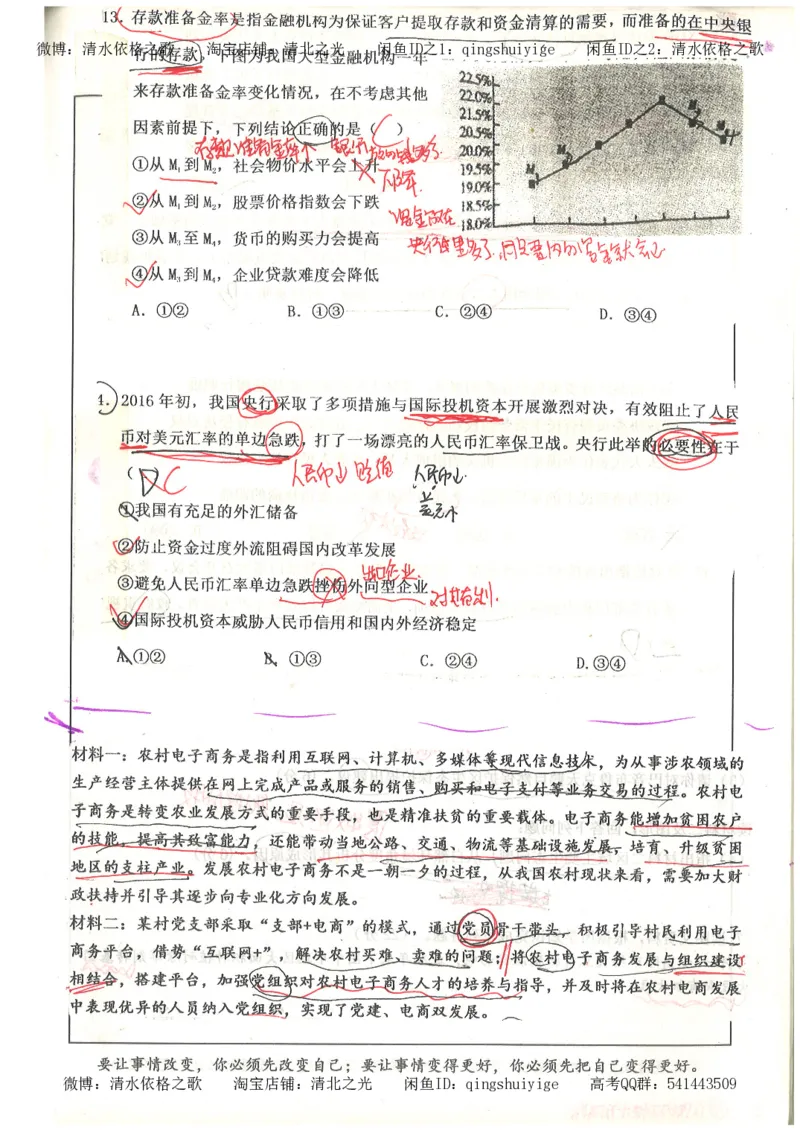 13. 存款准备金率是指金融机构为保证客户提取存款和资金清算的需要，而准备的在中央银
微博：清水依格之歌 淘宝店铺：清北之光 闲鱼ID之1：qingshuiyige 闲鱼ID之2：清水依格之歌
行的存款，下图为我国大型金融机构一年
来存款准备金率变化情况，在不考虑其他
因素前提下，下列结论正确的是（C）
①从M₁到M₂，社会物价水平会上升
下降.
②从M₁到M₂，股票价格指数会下跌
③从M₃至M₄，货币的购买力会提高
④从M₃到M₄，企业贷款难度会降低
A. ①② B. ①③ C. ②④ D. ③④
22.5%
22.0%
21.5%
20.5%
20.0%
19.5%
19.0%
18.5%
18.0%
4. 2016年初，我国央行采取了多项措施与国际投机资本开展激烈对决，有效阻止了人民
币对美元汇率的单边急跌，打了一场漂亮的人民币汇率保卫战。央行此举的必要性在于
（D）C 人民币贬值 人民币
①我国有充足的外汇储备
②防止资金过度外流阻碍国内改革发展
出口企业
③避免人民币汇率单边急跌挫伤外向型企业
对其有利.
④国际投机资本威胁人民币信用和国内外经济稳定
A.①② B. ①③ C. ②④ D.③④
材料一：农村电子商务是指利用互联网、计算机、多媒体等现代信息技术，为从事涉农领域的
生产经营主体提供在网上完成产品或服务的销售、购买和电子支付等业务交易的过程。农村电
子商务是转变农业发展方式的重要手段，也是精准扶贫的重要载体。电子商务能增加贫困农户
的技能，提高其致富能力，还能带动当地公路、交通、物流等基础设施发展，培育、升级贫困
地区的支柱产业。发展农村电子商务不是一朝一夕的过程，从我国农村现状来看，需要加大财
政扶持并引导其逐步向专业化方向发展。
材料二：某村党支部采取“支部+电商”的模式，通过党员骨干带头，积极引导村民利用电子
商务平台，借势“互联网+”，解决农村买难、卖难的问题；将农村电子商务发展与组织建设
相结合，搭建平台，加强党组织对农村电子商务人才的培养与指导，并及时将在农村电商发展
中表现优异的人员纳入党组织，实现了党建、电商双发展。
要让事情改变，你必须先改变自己；要让事情变得更好，你必须先把自己变得更好。
微博：清水依格之歌 淘宝店铺：清北之光 闲鱼ID：qingshuiyige 高考QQ群：541443509